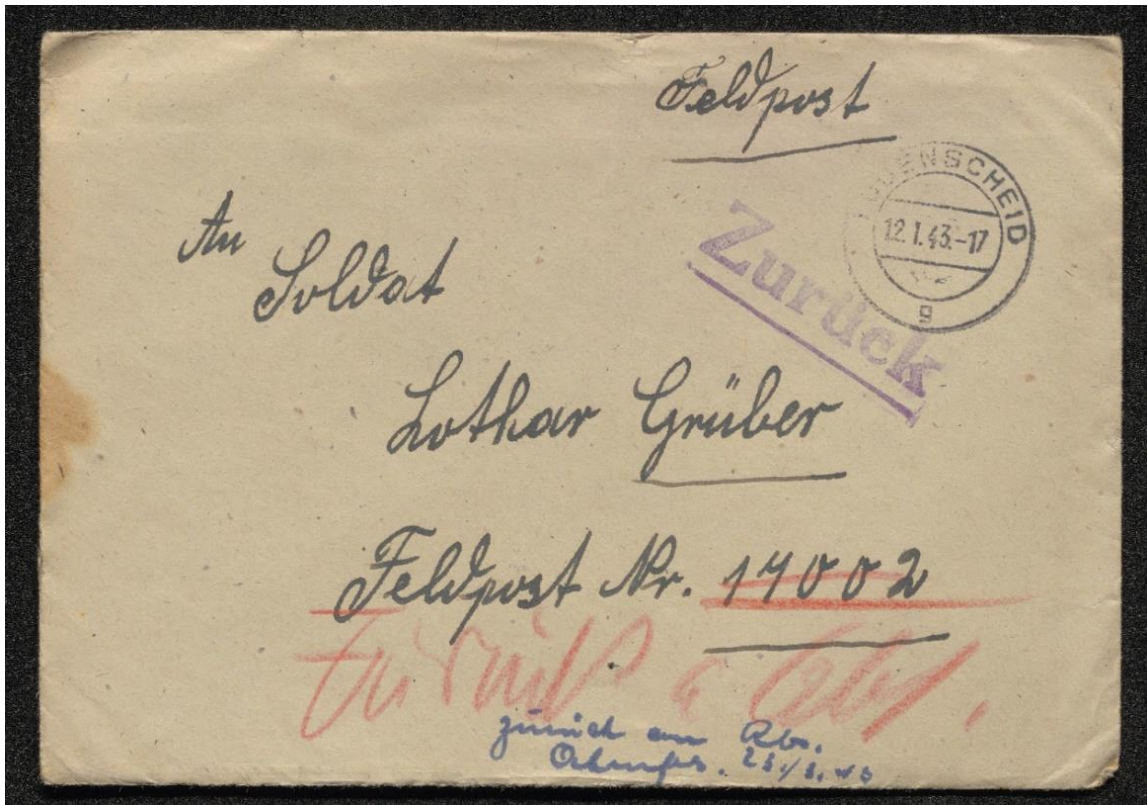 Feldpost
LÜDENSCHEID
12.1.43.-17
g
Zurück
An
Soldat
Lothar Grüber
Feldpost Nr. 17002
Zurück a Abs.
zurück an Abs.